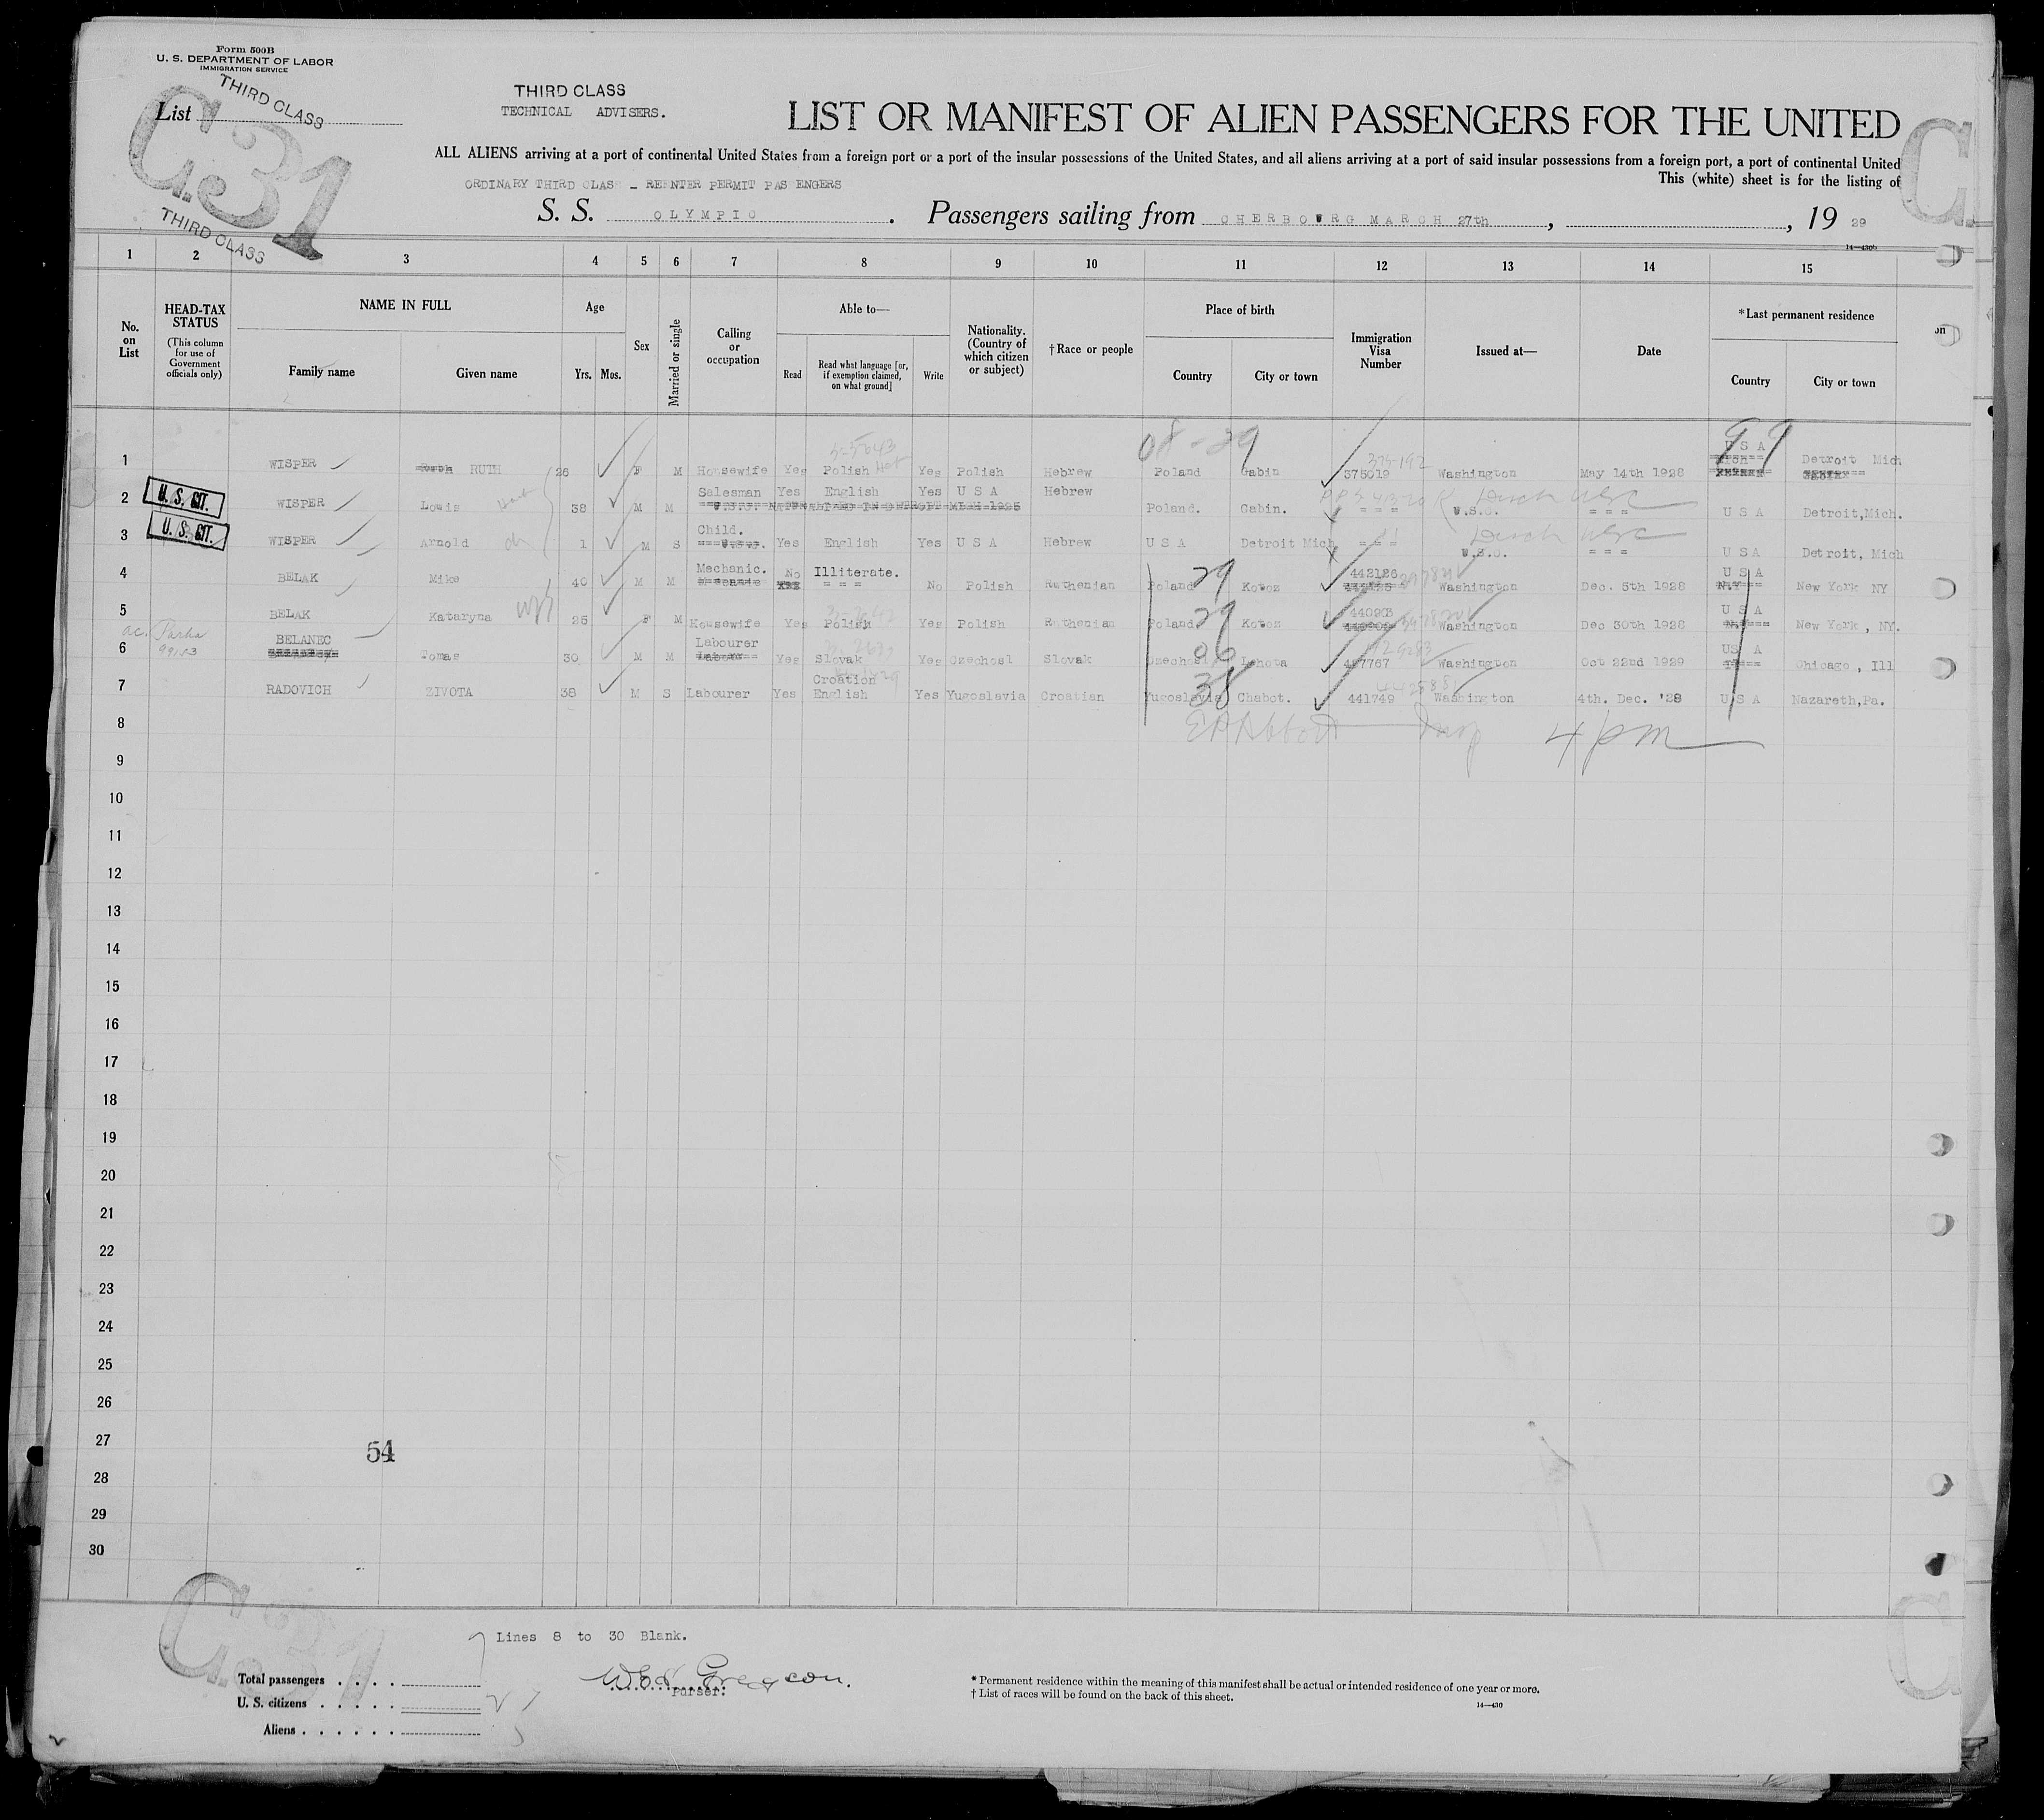 Form 500B
U. S. DEPARTMENT OF LABOR
IMMIGRATION SERVICE
List
THIRD CLASS
C.31
THIRD CLASS
THIRD CLASS
TECHNICAL ADVISERS.
LIST OR MANIFEST OF ALIEN PASSENGERS FOR THE UNITED
ALL ALIENS arriving at a port of continental United States from a foreign port or a port of the insular possessions of the United States, and all aliens arriving at a port of said insular possessions from a foreign port, a port of continental United
This (white) sheet is for the listing of
ORDINARY THIRD CLASS - REENTER PERMIT PASSENGERS
S. S. OLYMPIC . Passengers sailing from CHERBOURG MARCH 27th , , 19 29
14—430b
1 2 3 4 5 6 7 8 9 10 11 12 13 14 15
No. on List
HEAD-TAX STATUS (This column for use of Government officials only)
NAME IN FULL
Family name Given name
Age
Yrs. Mos.
Sex
Married or single
Calling or occupation
Able to—
Read Read what language [or, if exemption claimed, on what ground] Write
Nationality. (Country of which citizen or subject)
†Race or people
Place of birth
Country City or town
Immigration Visa Number
Issued at—
Date
*Last permanent residence
Country City or town
08-29 99
1 WISPER RUTH 26 F M Housewife Yes Polish Yes Polish Hebrew Poland Gabin 375019 Washington May 14th 1928 U S A Detroit Mich
2 U. S. CIT. WISPER Louis 38 M M Salesman Yes English Yes U S A Hebrew Poland. Gabin. = = = U.S.C. = = = U S A Detroit,Mich.
3 U. S. CIT. WISPER Arnold 1 M S Child. Yes English Yes U S A Hebrew U S A Detroit Mich = = = U.S.C. = = = U S A Detroit, Mich
4 BELAK Mike 40 M M Mechanic. No Illiterate. = = = No Polish Ruthenian Poland 29 442126 Washington Dec. 5th 1928 U S A New York NY
5 BELAK Kataryna 25 F M Housewife Yes Polish Yes Polish Ruthenian Poland 29 440903 Washington Dec 30th 1928 U S A New York , NY.
6 99103 BELANEC Tomas 30 M M Labourer Yes Slovak Yes Czechosl Slovak Czechosl 06 Lehota 427767 Washington Oct 22nd 1929 US A Chicago , Ill
7 RADOVICH ZIVOTA 38 M S Labourer Yes Croation English Yes Yugoslavia Croatian Yugoslavia 38 Chabot. 441749 Washington 4th. Dec. '28 U S A Nazareth,Pa.
8 4 pm
9
10
11
12
13
14
15
16
17
18
19
20
21
22
23
24
25
26
27
54
28
29
30
C.31
Lines 8 to 30 Blank.
Total passengers . . . .
U. S. citizens . . . . .
Aliens . . . . . .
Purser.
* Permanent residence within the meaning of this manifest shall be actual or intended residence of one year or more.
† List of races will be found on the back of this sheet.
14—430